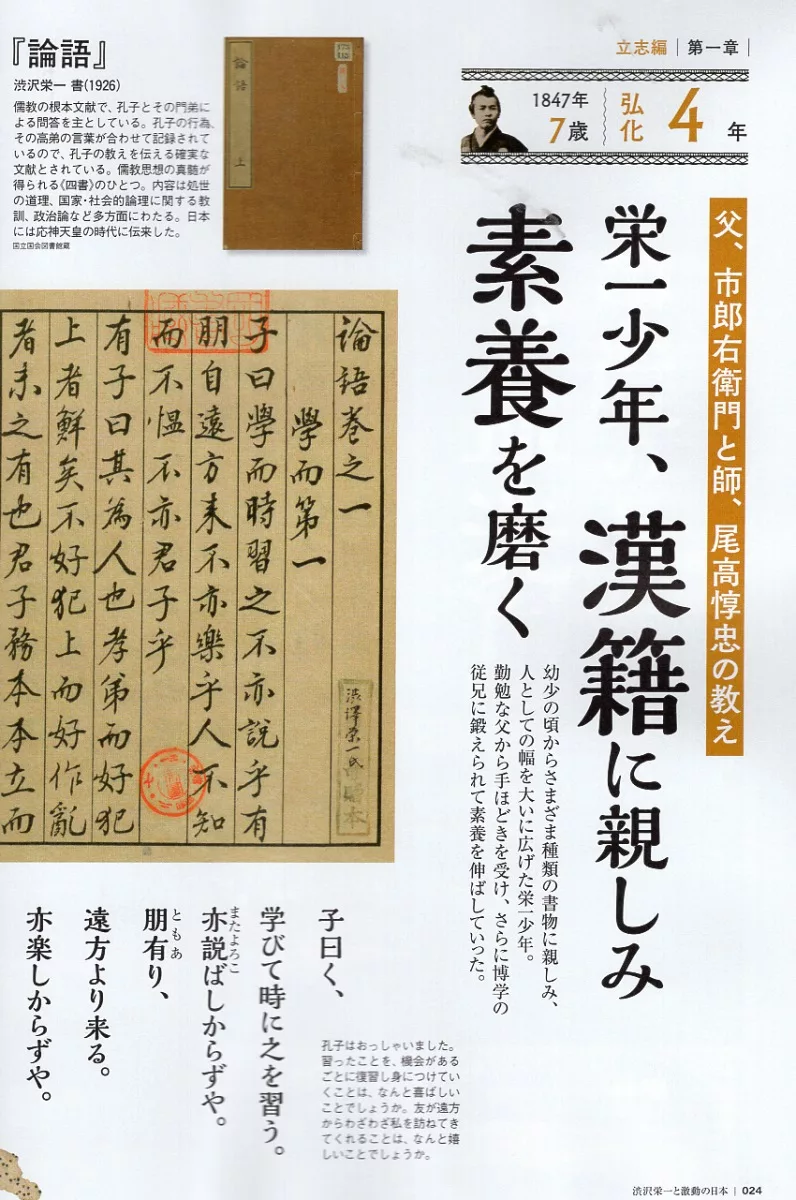 立志編｜第一章｜
1847年
7歳
弘化
4年
父、市郎右衛門と師、尾高惇忠の教え
栄一少年、漢籍に親しみ
素養を磨く
幼少の頃からさまざま種類の書物に親しみ、
人としての幅を大いに広げた栄一少年。
勤勉な父から手ほどきを受け、さらに博学の
従兄に鍛えられて素養を伸ばしていった。
『論語』
渋沢栄一 書(1926)
儒教の根本文献で、孔子とその門弟に
よる問答を主としている。孔子の行為、
その高弟の言葉が合わせて記録されて
いるので、孔子の教えを伝える確実な
文献とされている。儒教思想の真髄が
得られる《四書》のひとつ。内容は処世
の道理、国家・社会的論理に関する教
訓、政治論など多方面にわたる。日本
には応神天皇の時代に伝来した。
国立国会図書館蔵
論語 上
論語巻之一
學而第一
子曰學而時習之不亦説乎有
朋自遠方来不亦樂乎人不知
而不慍不亦君子乎
有子曰其為人也孝弟而好犯
上者鮮矣不好犯上而好作亂
者未之有也君子務本本立而
渋澤栄一氏
子曰く、
学びて時に之を習う。
亦説ばしからずや。
またよろこ
朋有り、
ともあ
遠方より来る。
亦楽しからずや。
孔子はおっしゃいました。
習ったことを、機会がある
ごとに復習し身につけてい
くことは、なんと喜ばしい
ことでしょうか。友が遠方
からわざわざ私を訪ねてき
てくれることは、なんと嬉
しいことでしょうか。
渋沢栄一と激動の日本｜024